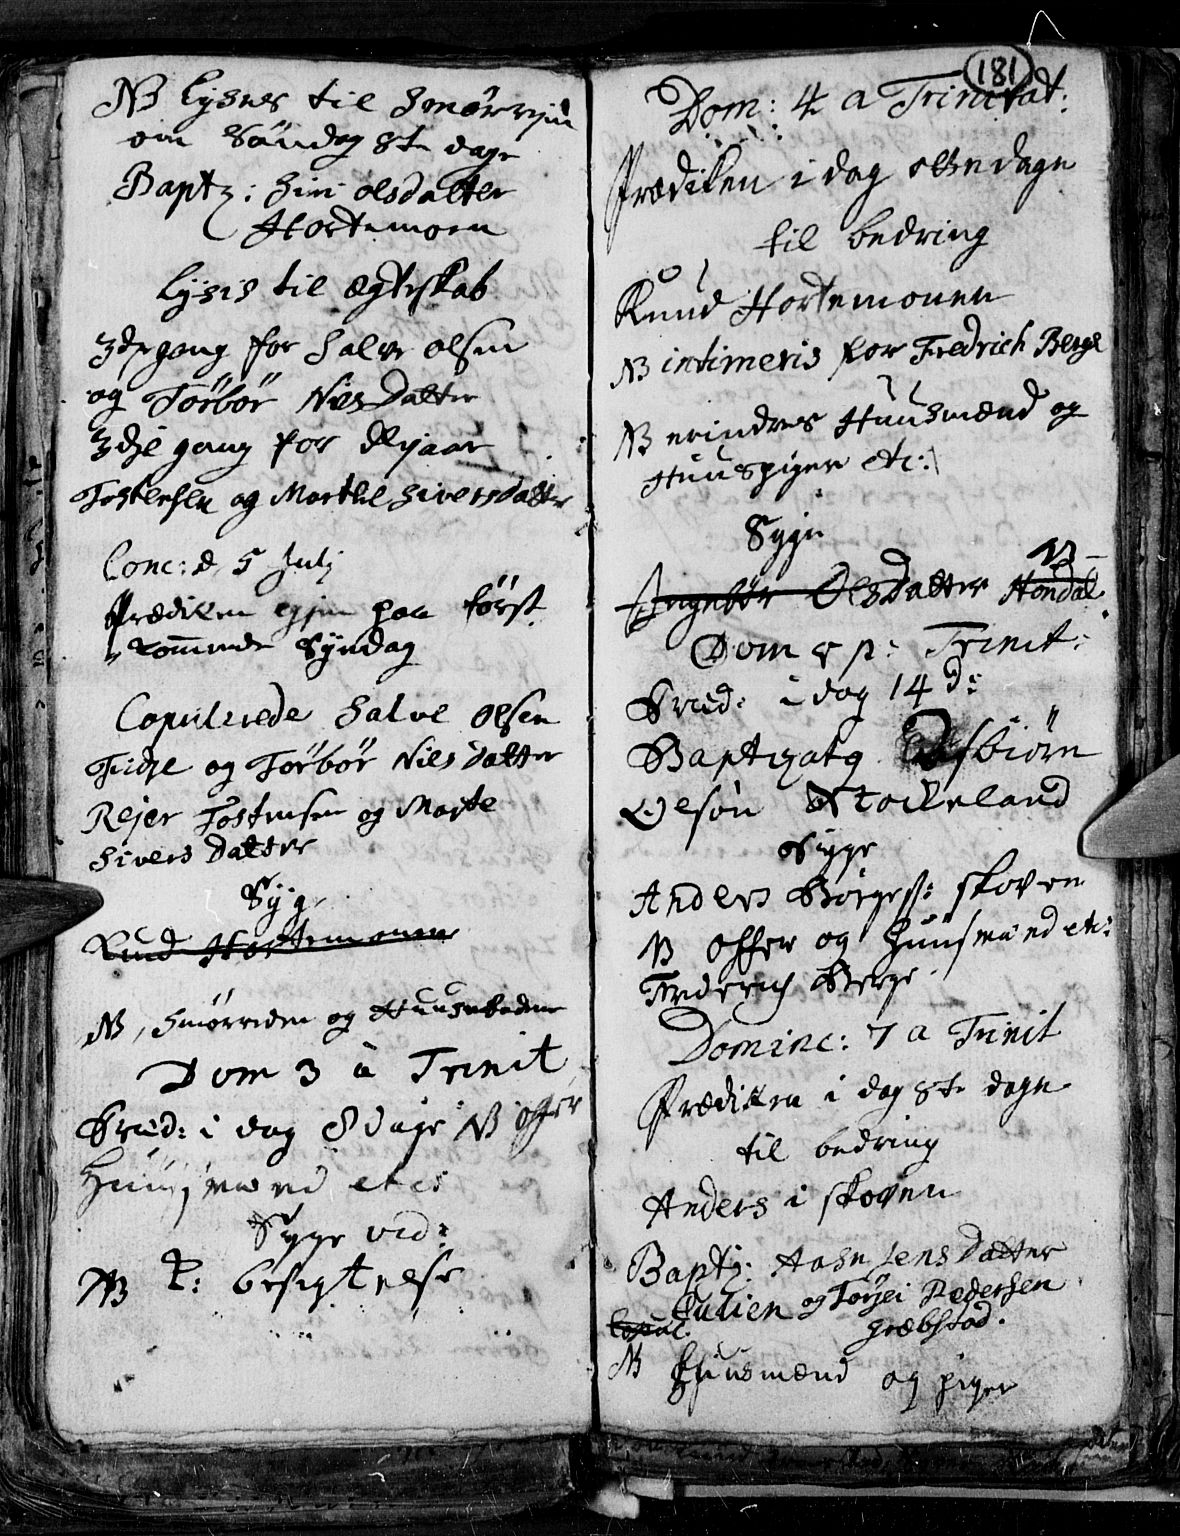 NB Lyses til Smørrejen
om Søndag 8te dage
Baptz: Siri olsdatter
Hortemoen
Lysis til ægteskab
3die gang for Salve olsen
og Torbør Nils Datter
3die gang for Rejaar
Tostensen og Marthe Siversdatter
Conc: d. 5 July
Prædiken igjen paa først
kommende Syndag
Copulerede Salve olsen
og Torbør Nilsdatter
Rejer Tostensen og Marte
Sivers Datter
Syge
Knud Hortemonen
NB, Smørreiden og
Dom 3 à Trinit
Præd: i dag 8 dage NB offer
Huusmænd etc:
Syge vid:
NB K: besigtelse
181
Dom: 4 a Trinitat:
Prædiken i dag otte dage
til bedring
Knud Hortemonen
NB intimeris for Fredrich Berge
NB erindres Huusmænd og
Huuspiger etc:
Syge
NB
Ingebør OlsDatter Hondal
Dom 5 p: Trinit:
Præd: i dag 14 d:
Baptizatq Asbiørn
Olsøn Stockeland
Syge
Anders Børges: skoven
NB offer og Huusmænd etc:
Frederich Berge
Dominc: 7 a Trinit
Prædiken i dag 8te dage
til bedring
Anders i skoven
Baptz: Aase Jens Datter
Copul: Julien og Torjei Pedersen
Græbstad.
NB Huusmænd og piger